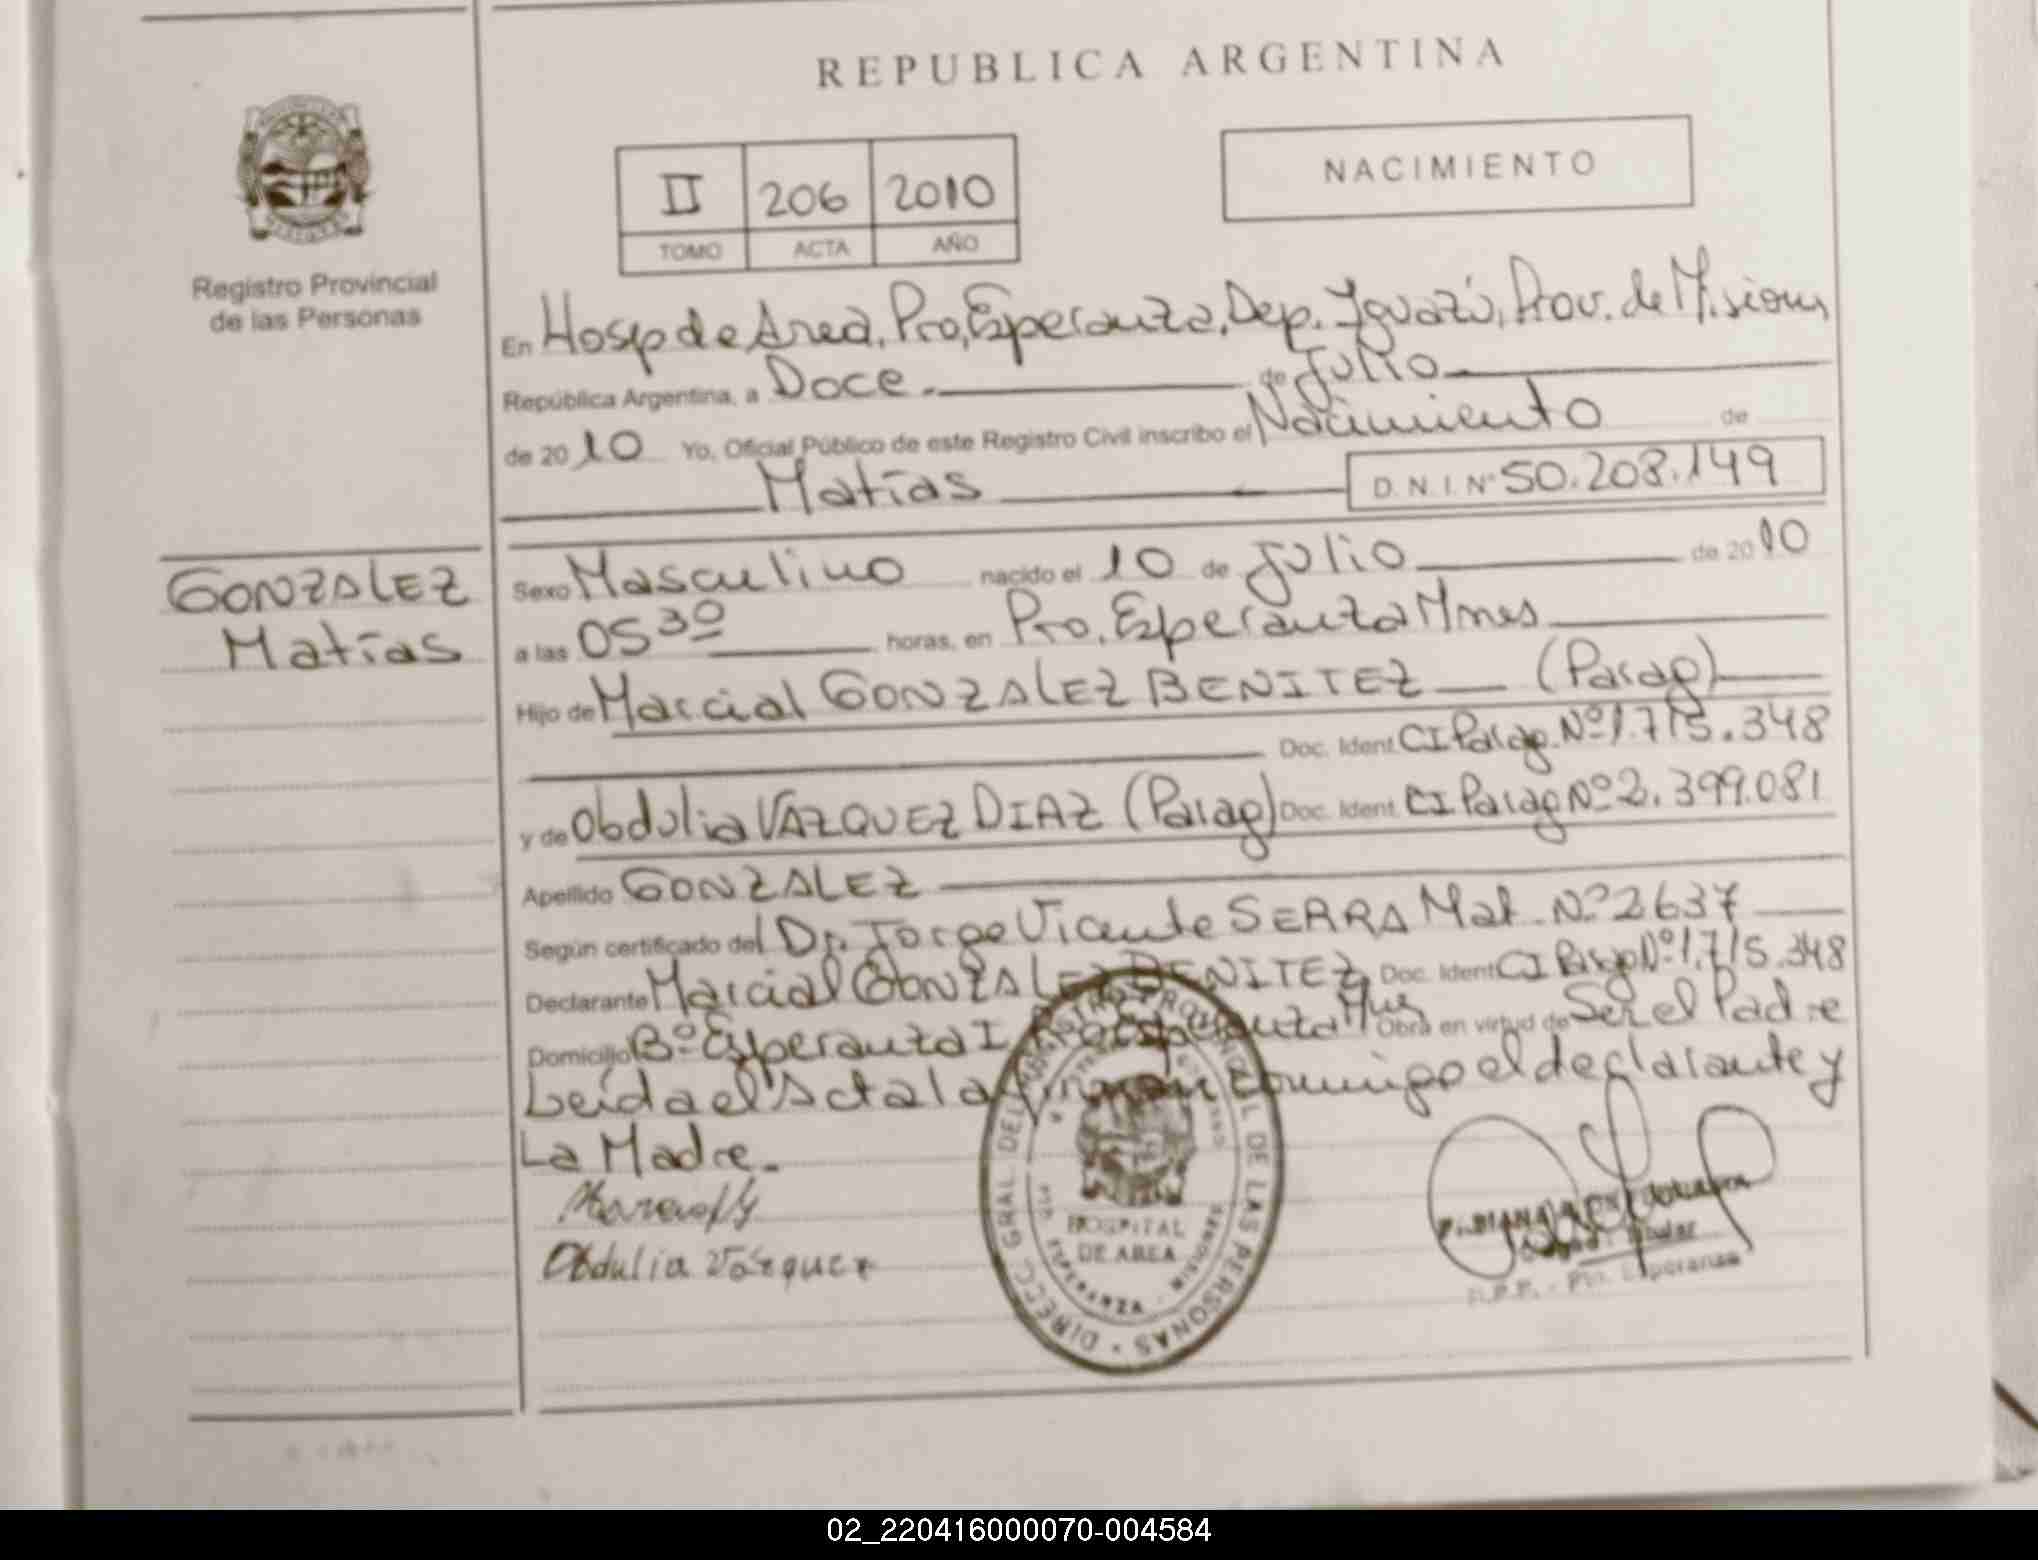 REPUBLICA ARGENTINA
Registro Provincial
de las Personas
II 206 2010
TOMO ACTA AÑO
NACIMIENTO
En Hosp de Area, Pto, Esperanza, Dep. Iguazú, Prov. de Misiones
República Argentina, a Doce.- de Julio
de 2010 Yo, Oficial Público de este Registro Civil inscribo el Nacimiento de
Matías D. N. I. Nº 50.208.149
GONZALEZ
Matías
Sexo Masculino nacido el 10 de Julio de 2010
a las 05 30 horas, en Pto. Esperanza Mnes
Hijo de Marcial GONZALEZ BENITEZ (Parag)
Doc. Ident. CI Parag. Nº 1.715.348
y de Obdulia VAZQUEZ DIAZ (Parag) Doc. Ident. CI Parag Nº 2.399.081
Apellido GONZALEZ
Según certificado del Dr. Jorge Vicente SERRA Mat. Nº 2637
Declarante Marcial GONZALEZ BENITEZ Doc. Ident. CI Parag Nº 1.715.348
Domicilio Bº Esperanza I Pto Esperanza Mnes Obra en virtud de Ser el Padre
Leída el Acta la firman conmigo el declarante y
La Madre.-
Obdulia Vázquez
DIRECC. GRAL. DEL REGISTRO PROVINCIAL DE LAS PERSONAS
HOSPITAL
DE AREA
PTO. ESPERANZA - MISIONES
R.P.P. - Pto. Esperanza
02_220416000070-004584